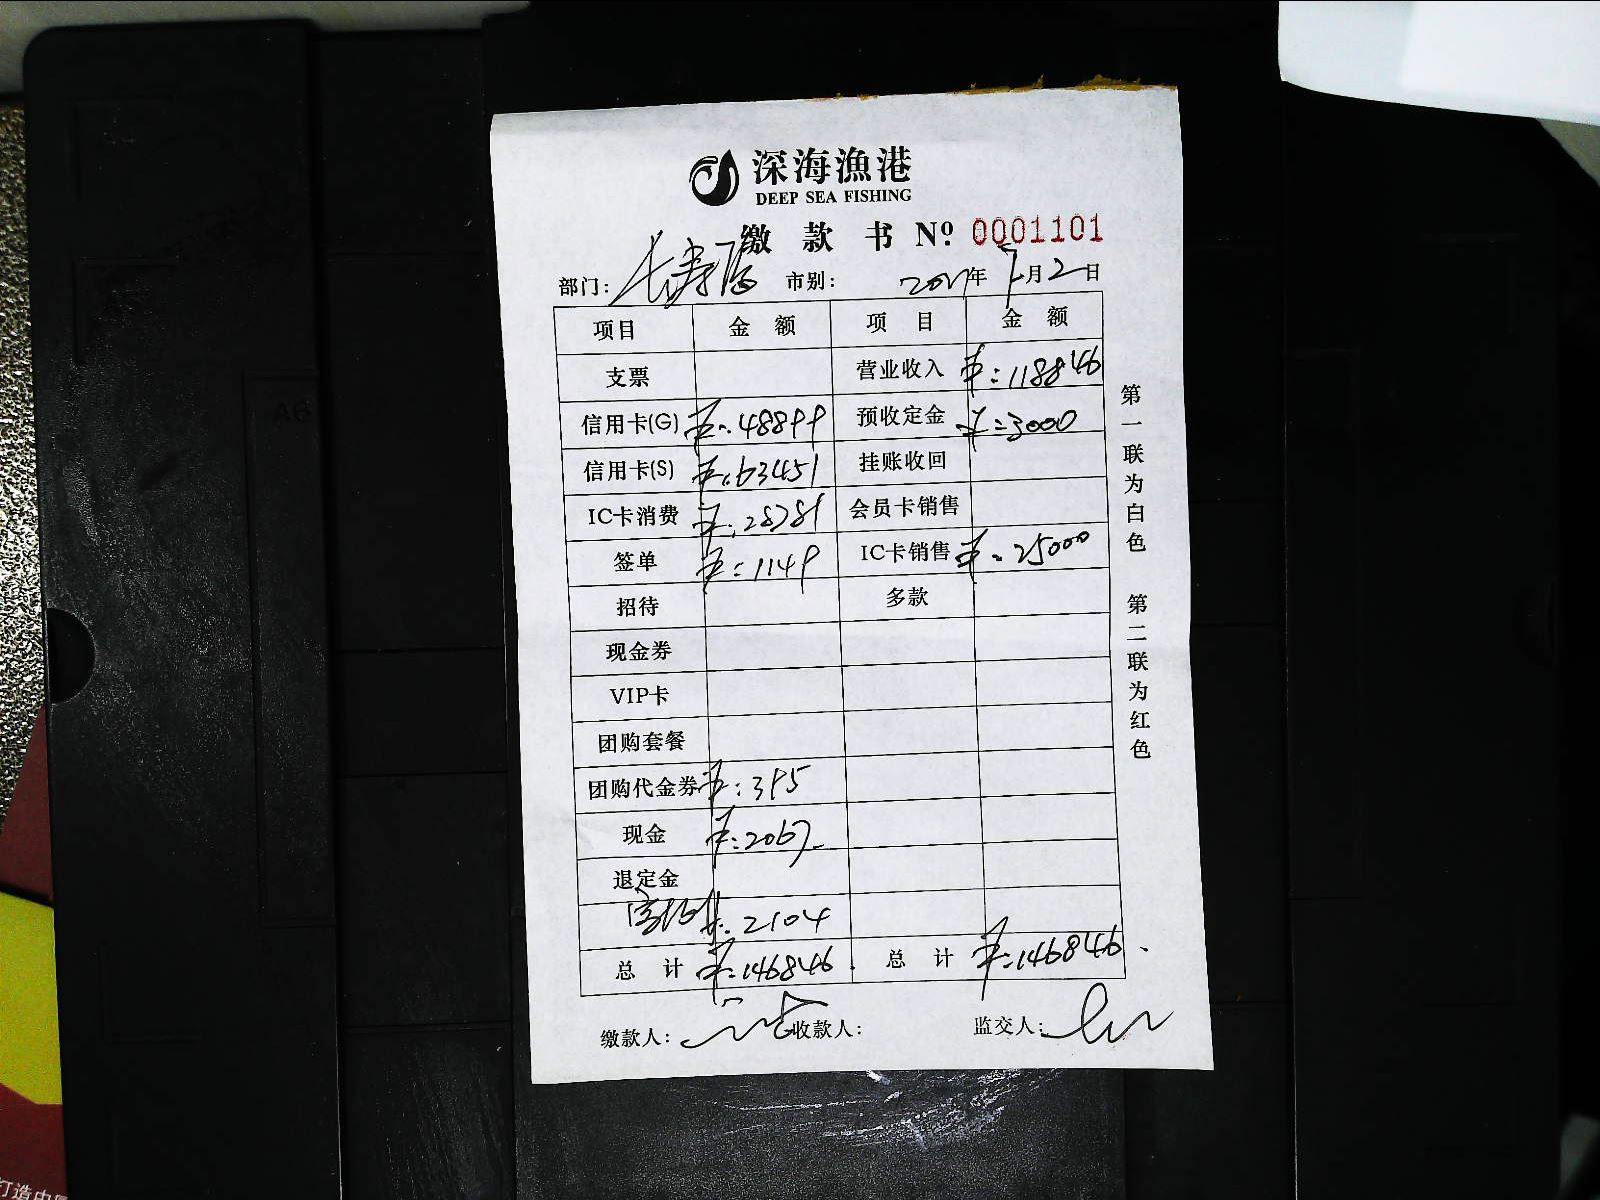 深海漁港
DEEP SEA FISHING
缴款书 Nº 0001101
部门: 长寿路 市别: 年 7月2日
项目 金额 项目 金额
支票 营业收入 ¥:118846
信用卡(G) ¥:48899 预收定金 ¥:3000
信用卡(S) ¥:63451 挂账收回
IC卡消费 ¥:28781 会员卡销售
签单 ¥:1149 IC卡销售 ¥:25000
招待 多款
现金券
VIP卡
团购套餐
团购代金券 ¥:395
现金 ¥:2067
退定金
¥:2104
总计 ¥:146846 总计 ¥:146846
缴款人: 收款人: 监交人:
第一联为白色 第二联为红色
打造中